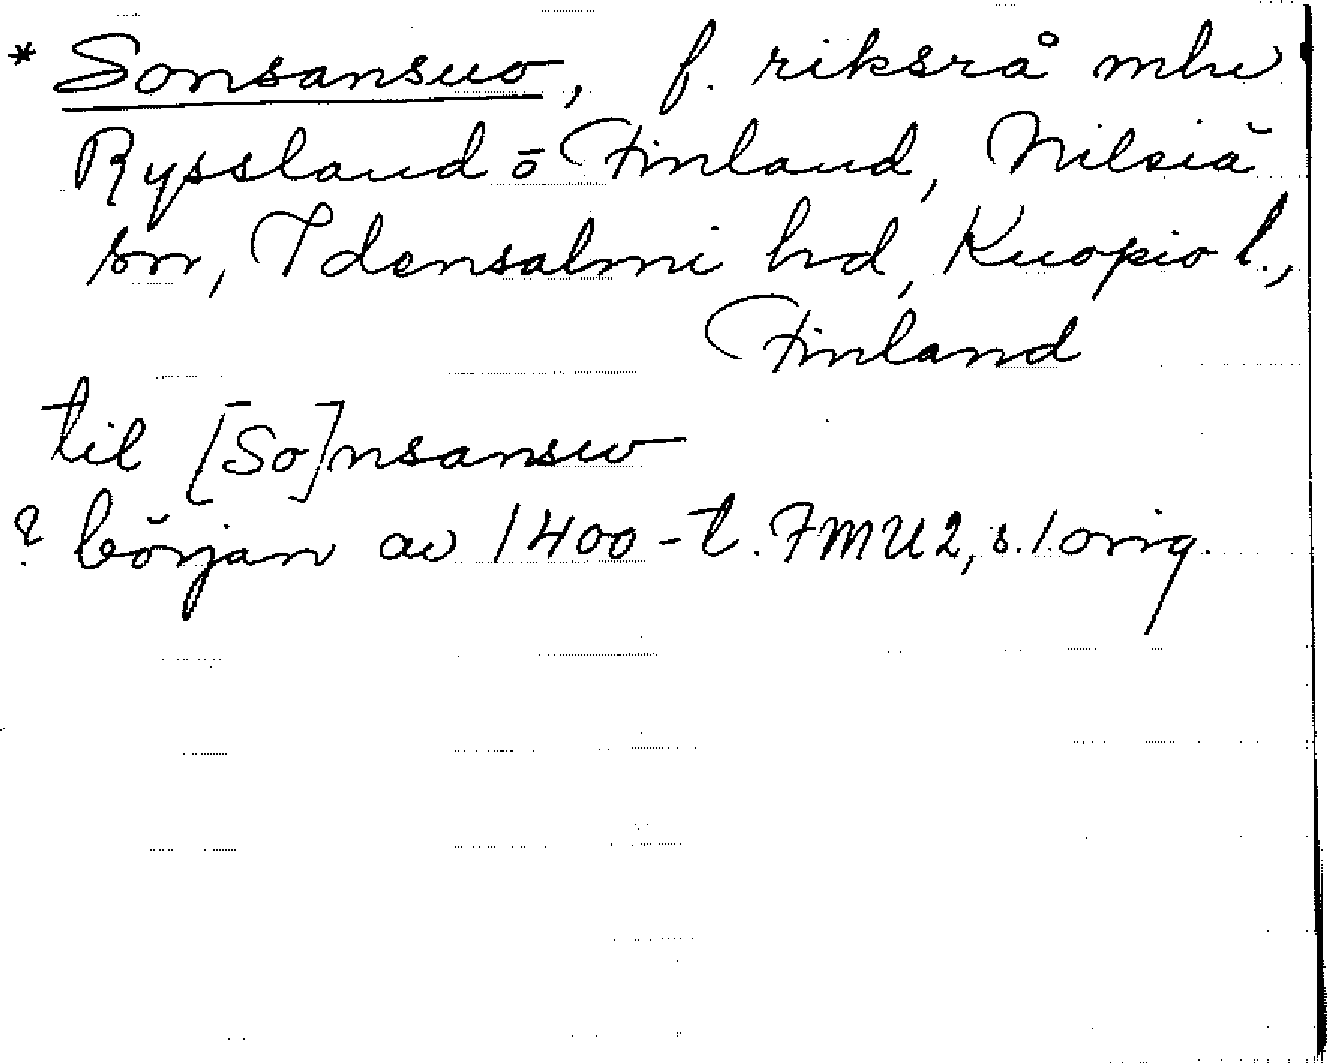 * Sonsansuo, f. riksrå mhe
Ryssland o Finland, Nilsiä
sn, Idensalmi hd, Kuopio l.,
Finland
til [So]nsansw
? början av 1400-t. FMU2, s. 1 orig.